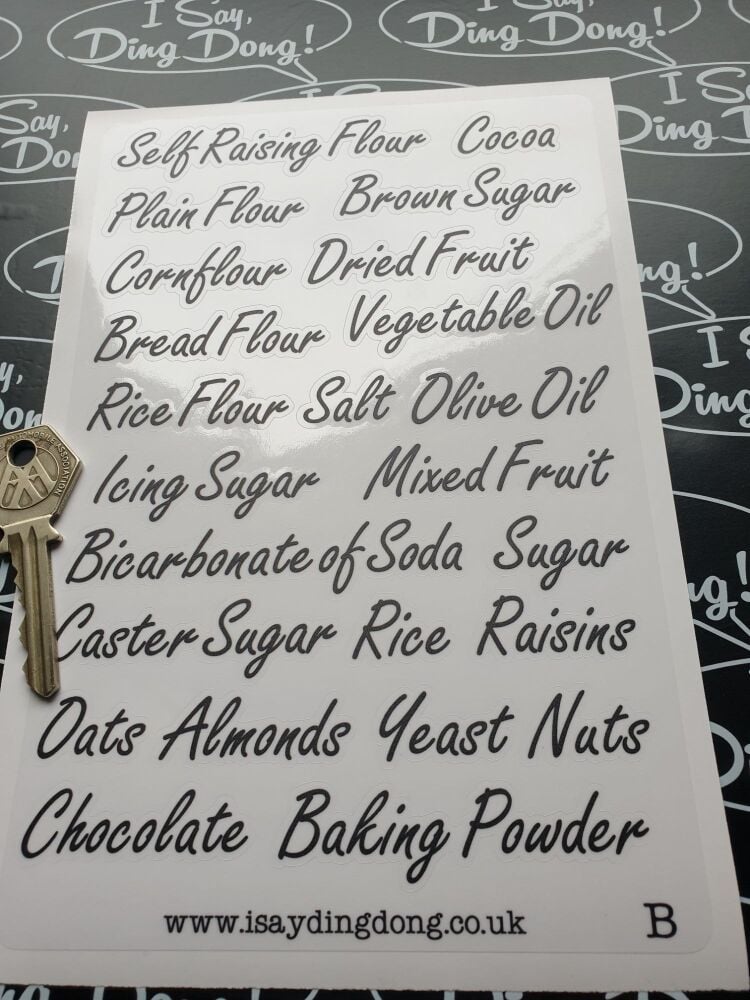 I Say,
Ding Dong!
I Say,
Ding Dong!
I Say,
Ding Dong!
Self Raising Flour Cocoa
Plain Flour Brown Sugar
Cornflour Dried Fruit
Bread Flour Vegetable Oil
Rice Flour Salt Olive Oil
Icing Sugar Mixed Fruit
Bicarbonate of Soda Sugar
Caster Sugar Rice Raisins
Oats Almonds Yeast Nuts
Chocolate Baking Powder
www.isaydingdong.co.uk B
AUTOMOBILE ASSOCIATION
AA